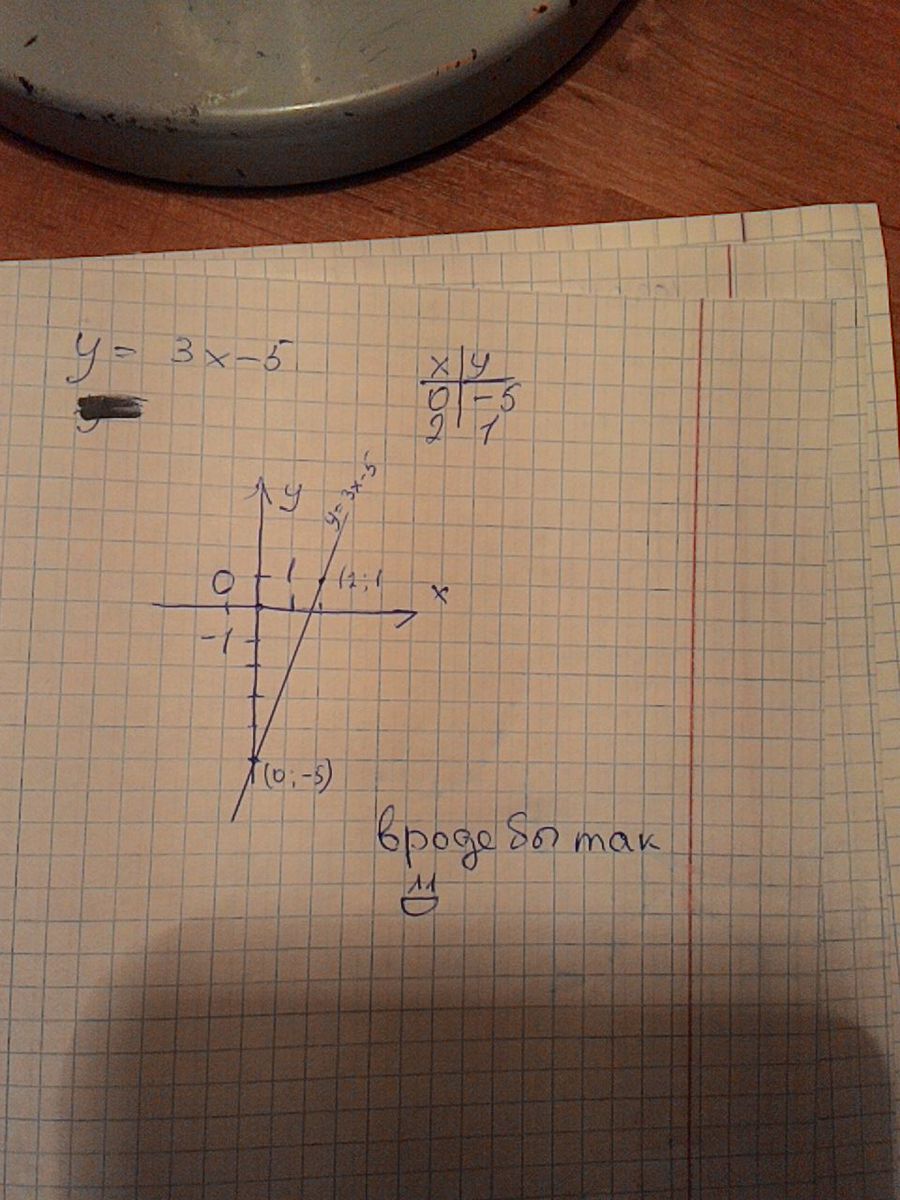 y = 3x-5
x y
0 -5
2 1
y
y=3x-5
0 1 (2;1
x
-1
(0;-5)
вроде бы так